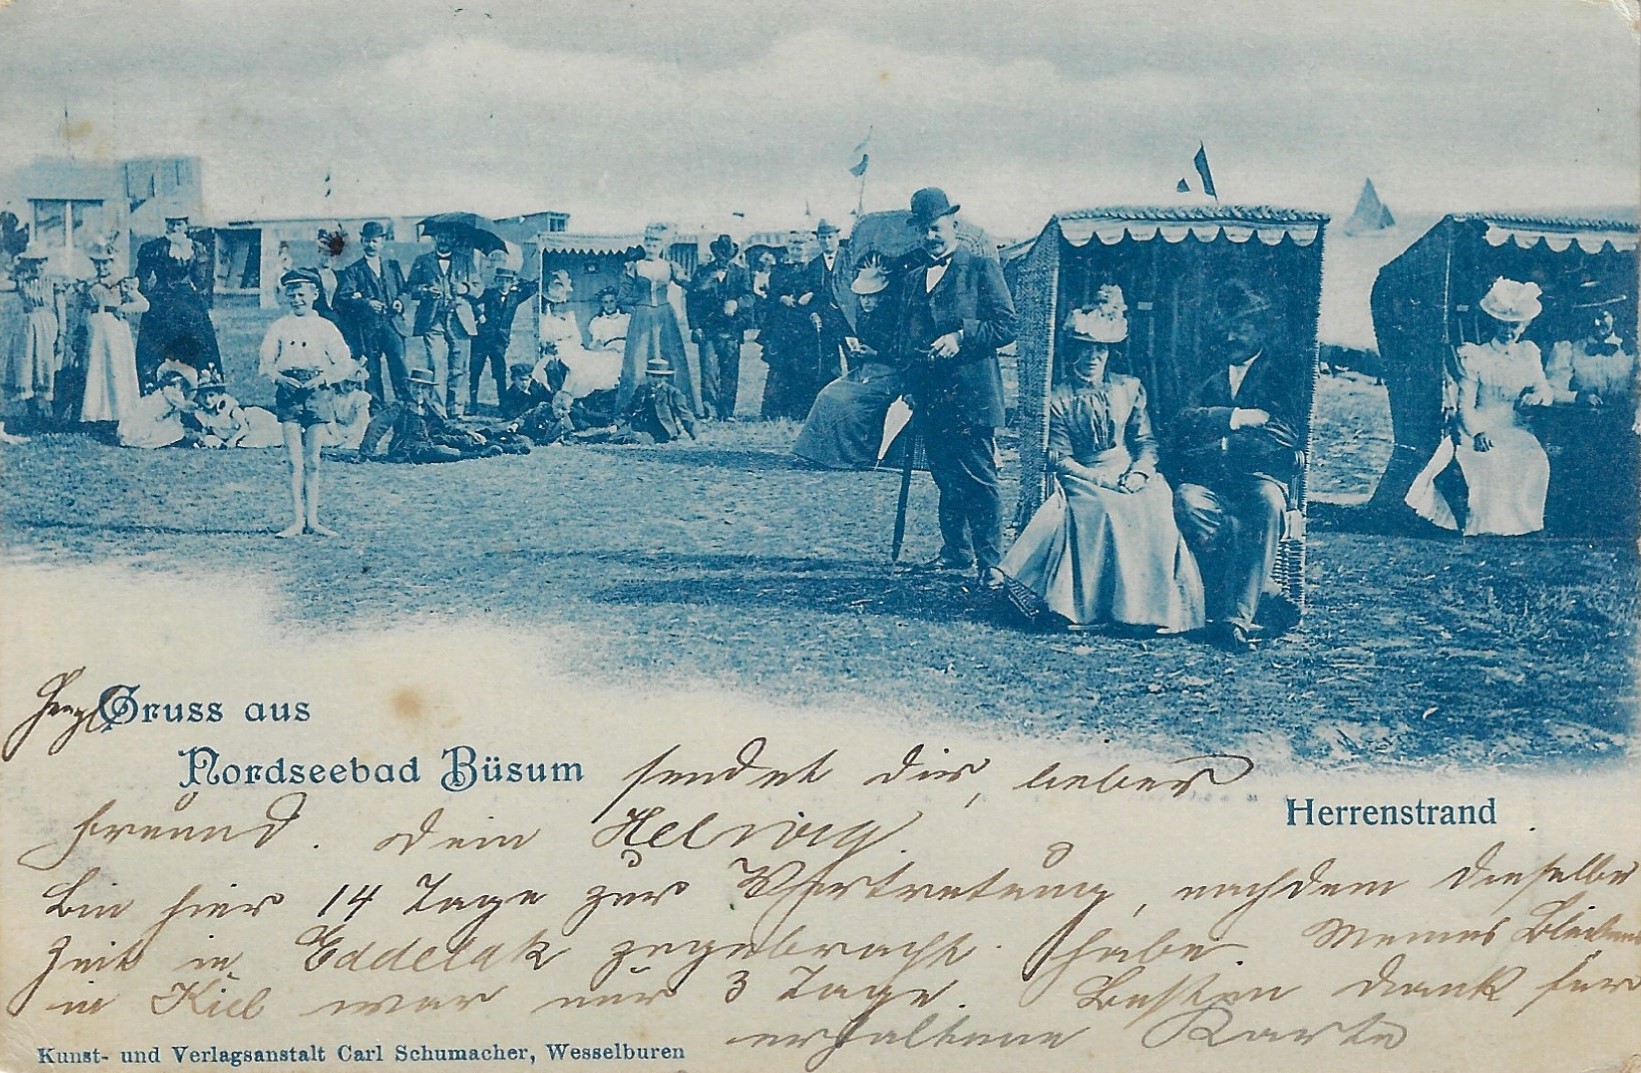 Herzl. Gruss aus
Nordseebad Büsum sendet dir, lieber
Herrenstrand
Freund. Dein Helwig.
Bin hier 14 Tage zur Vertretung, nachdem dieselbe
Zeit in Eddelak zugebracht habe. Meines Bleibens
in Kiel war nur 3 Tage. Besten Dank für
erhaltene Karte
Kunst- und Verlagsanstalt Carl Schumacher, Wesselburen